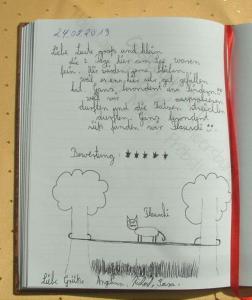 24.08.2019
Liebe Leute groß und klein
die 2 Tage hier am See waren
fein. Wir würden gerne bleiben,
weil es uns hier sehr gut gefallen
hat. Ganz besonders den Kindern
weil wir
durften und die Katzen streicheln
durften. Ganz besonders
süß fanden wir Muschi
Bewertung:
Muschi
Liebe Grüße